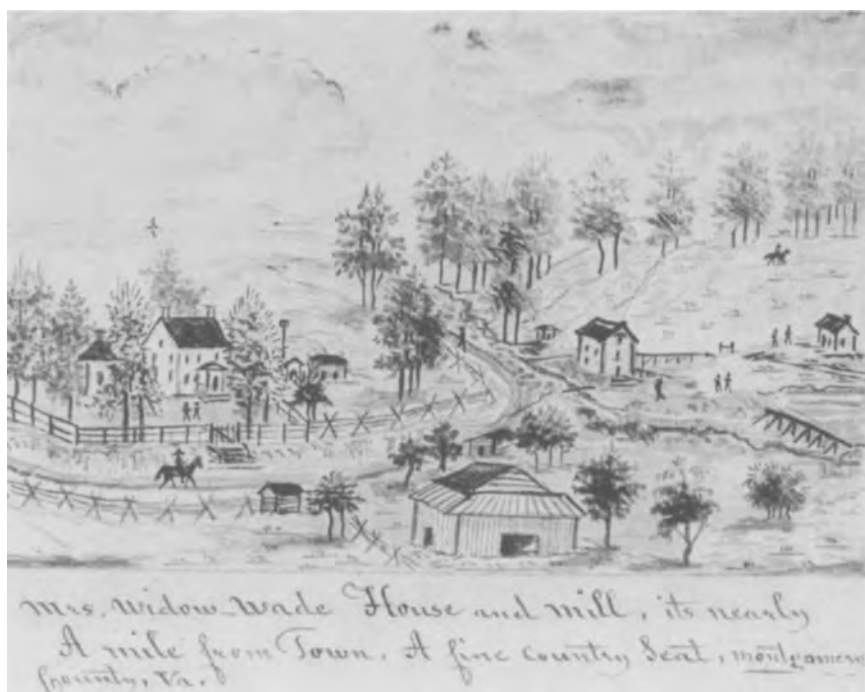 Mrs. Widow Wade House and mill, its nearly
A mile from Town. A fine country Seat, montgomery
County, Va.